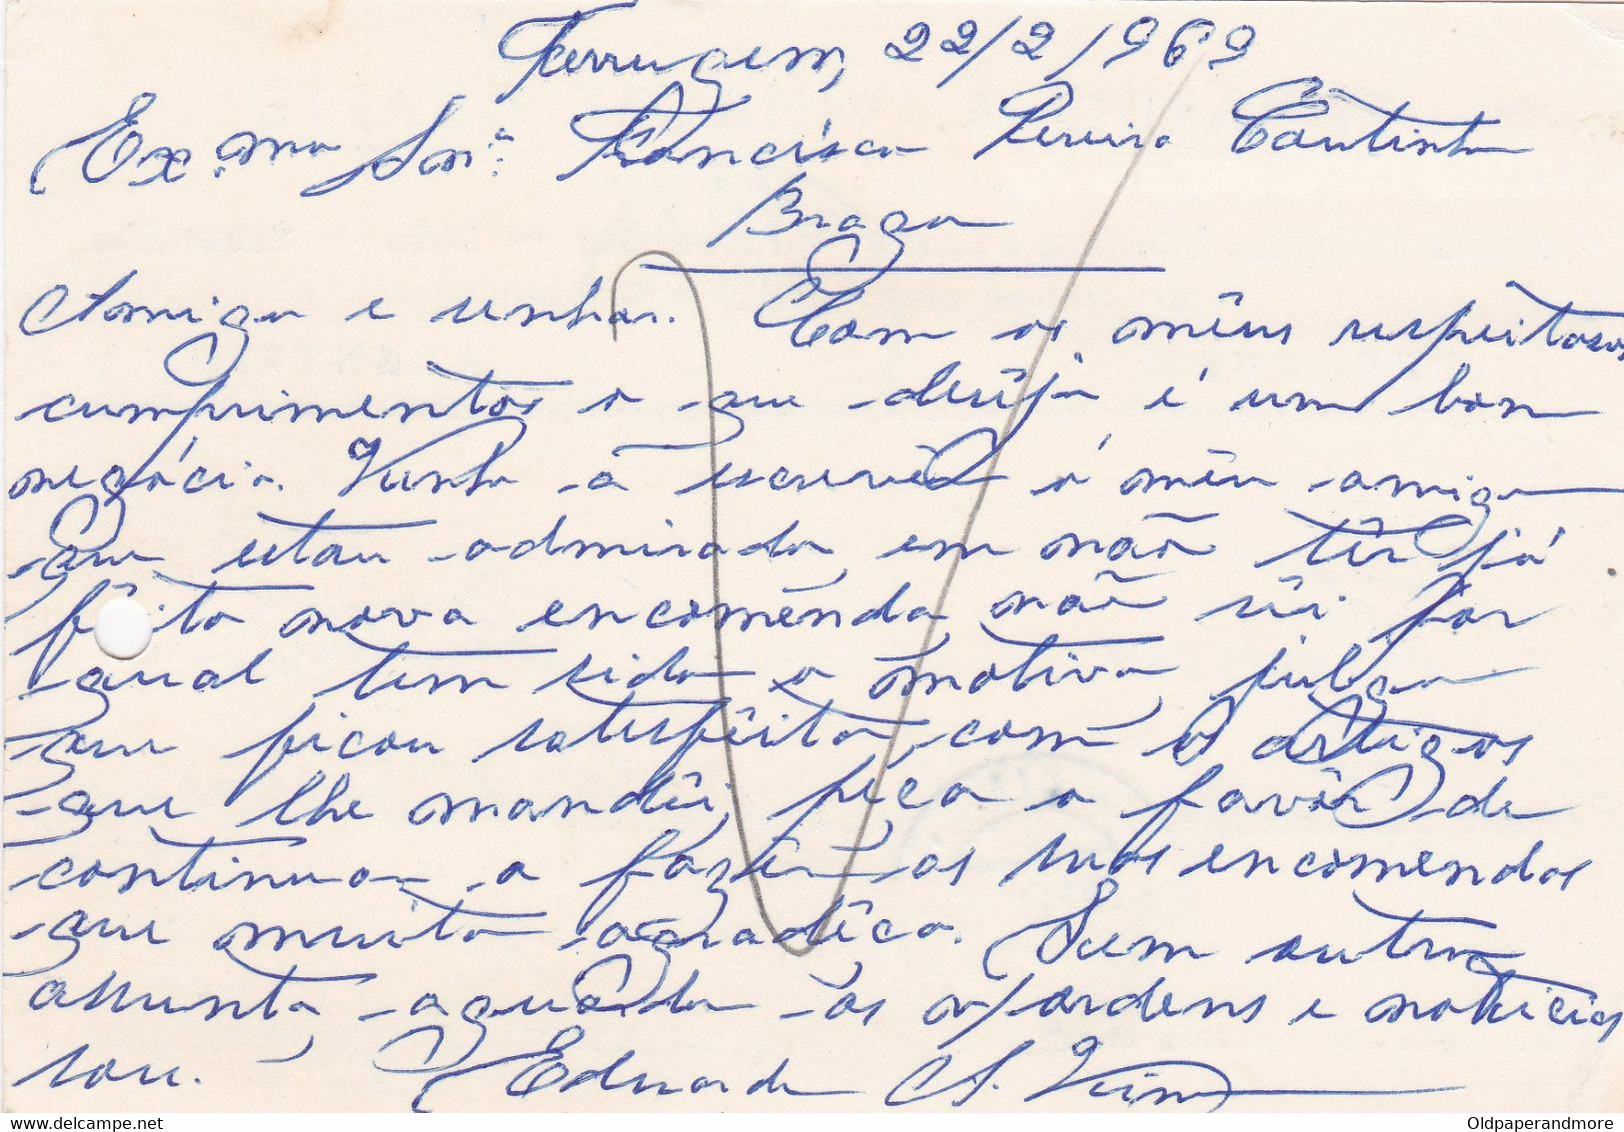 Ferrugem, 22/2/1969
Ex.mo Snr. Francisco Pereira Coutinho
Braga
Amigo e senhor. Com os mêus respêitosos
cumprimentos o que desêja é um bom
negócio. Venho -a escrevêr ó mêu amigo
que estou admirado em não têr já
fêito nova encomênda, não sêi por
qual tem sido o motivo, julgo
que ficou satesfêito, com os artigos
que lhe mandêi, péço o favôr de
continuar a fazêr -as suas encomendas
que muito agradêço. Sem outro
assunto, aguardo -as v/ordens e noticias
sou. Eduardo A. Vieira
Oldpaperandmore